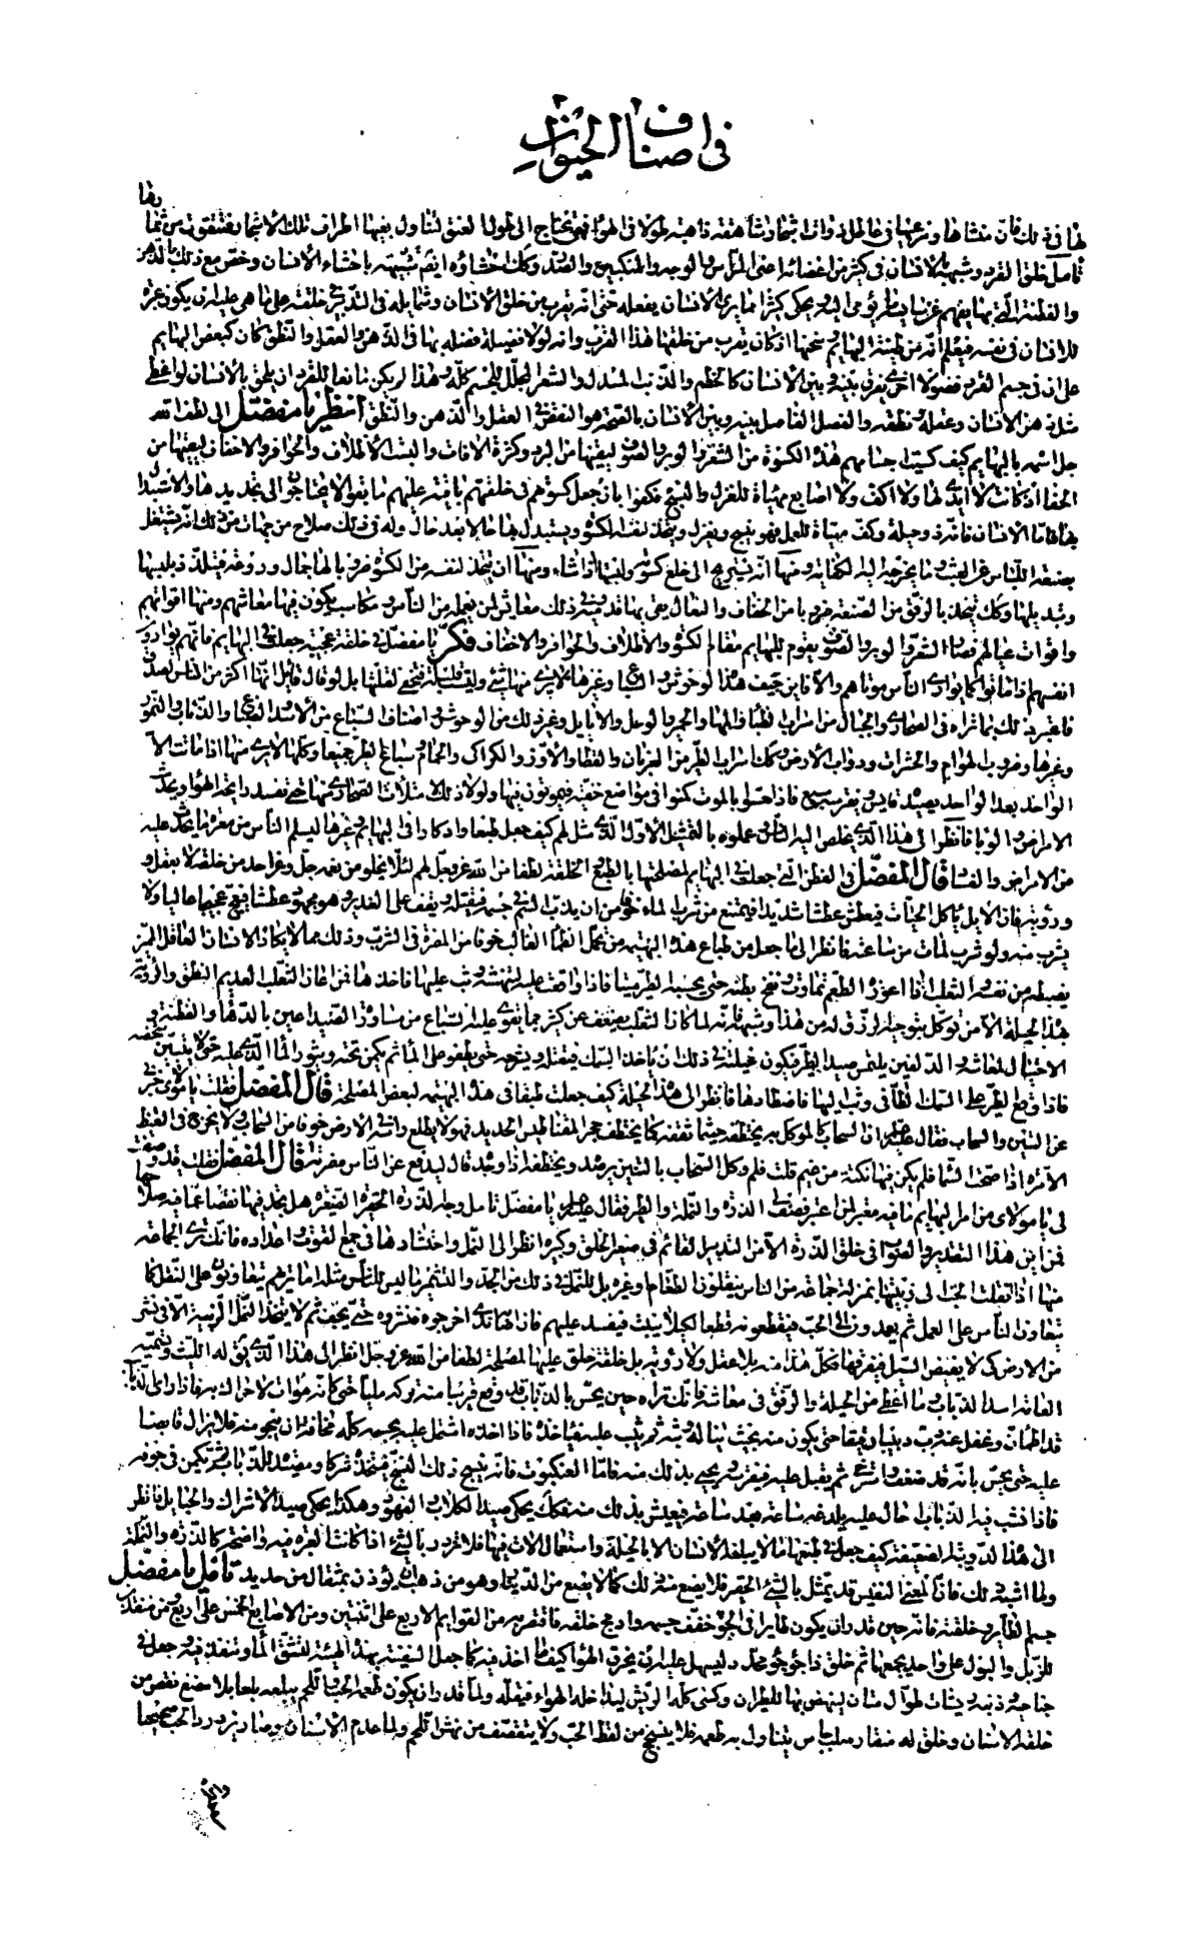 في اصناف الحيوان
رها
لها في ذلك فان منشاها ومرعاها في غياطل ذوات اشجار شاهقة ذاهبة طولا في الهواء فهي تحتاج الى طول العنق لتناول بفيها اطراف تلك الاشجار فتتقوت من ثما
تامل خلق القرد وشبهه بالانسان في كثير من اعضائه اعني الراس والوجه والمنكبين والصدر وكك احشاؤه ايضم شبيهة باحشاء الانسان وخص مع ذلك بالذهن
والفطنة التي بها يفهم عن سايسه ما يؤمي اليه ويحكي كثيرا مما يرى الانسان يفعله حتى انه يقرب من خلق الانسان وشمايله في التدبير في خلقته على ما هي عليه ان يكون عبرة
للانسان في نفسه فيعلم انه من طينة البهايم وسنخها اذ كان يقرب من خلقها هذا القرب وانه لولا فضيلة فضله بها في الذهن والعقل والنطق كان كبعض البهايم
على ان في جسم القرد فضولا اخرى يفرق بينه وبين الانسان كالخطم والذنب المسدل والشعر المجلل للجسم كله وهذا لم يكن مانعا للقرد ان يلحق بالانسان لو اعطي
مثل ذهن الانسان وعقله ونطقه والفصل الفاصل بينه وبين الانسان بالصحة هو النقص في العقل والذهن والنطق انظر يا مفضل الى لطف الله
جل اسمه بالبهايم كيف كسيت اجسامهم هذه الكسوة من الشعر والوبر والصوف ليقيها من البرد وكثرة الافات والبست الاظلاف والحوافر والاخفاف ليقيها من
الحفا اذ كانت لا ايدي لها ولا اكف ولا اصابع مهياة للغزل والنسج فكفوا بان جعل كسوتهم في خلقتهم باقية عليهم ما بقوا لا يحتاجون الى تجديدها والاستبدا
بها فاما الانسان فانه ذو حيلة وكف مهياة للعمل فهو ينسج ويغزل ويتخذ لنفسه الكسوة ويستبدل بها حالا بعد حال وله في ذلك صلاح من جهات من ذلك انه يشتغل
بصنعة اللباس عن العبث وما يخرجه اليه الكفاية ومنها انه يستريح الى خلع كسوته ولبسها اذا شاء ومنها ان يتخذ لنفسه من الكسوة ضروبا لها جمال وروعة فيتلذذ بلبسها
وتبديلها وكك يتخذ بالرفق من الصنعة ضروبا من الخفاف والنعال يقي بها قدميه وفي ذلك معايش لمن يعمله من الناس ومكاسب يكون فيها معاشهم ومنها اقواتهم
واقوات عيالهم فصار الشعر والوبر والصوف يقوم للبهايم مقام الكسوة والاظلاف والحوافر والاخفاف فكر يا مفضل في خلقة عجيبة جعلت في البهايم فانهم يوارون
انفسهم اذا ماتوا كما يواري الناس موتاهم والا فاين جيف هذه الوحوش والسباع وغيرها لا يرى منها شيء وليست قليلة فتخفى لقلتها بل لو قال قايل انها اكثر من الناس لصدق
فاعتبر ذلك بما تراه في الصحاري والجبال من اسراب الظباء والمها والحمير والوعل والايايل وغير ذلك من الوحوش واصناف السباع من الاسد والضباع والذئاب والنمور
وغيرها وضروب الهوام والحشرات ودواب الارض وكك اسراب الطير من الغربان والقطا والاوز والكراكي والحمام وسباع الطير جميعا وكلها لا يرى منها اذا ماتت الا
الواحد بعد الواحد يصيده قانص او يفترسه سبع فاذا احسوا بالموت كمنوا في مواضع خفية فيموتون فيها ولولا ذلك لامتلات الصحاري منها حتى تفسد رايحة الهواء ويحدث
الامراض والوباء فانظر الى هذا الذي يخلص اليه الناس وعملوه بالتمثيل الاول الذي مثل لهم كيف جعل طبعا واذكارا في البهايم وغيرها ليسلم الناس من معرة ما يحدث عليه
من الامراض والفساد قال المفضل في الفطن التي جعلت في البهايم لمصلحتها بالطبع والخلقة لطفا من الله عز وجل لهم لئلا يخلو من نعمه جل وعز احد من خلقه لا بعقل و
ورؤية فان الايل ياكل الحيات فيعطش عطشا شديدا فيمتنع من شرب الماء خوفا من ان يدب السم في جسمه فيقتله ويقف على الغدير وهو مجهود عطشا فيعج عجيجا عاليا ولا
يشرب منه ولو شرب لمات من ساعته فانظر الى ما جعل من طباع هذه البهيمة من تحمل الظماء الغالب خوفا من المضرة في الشرب وذلك مما لا يكاد الانسان العاقل المميز
يضبطه من نفسه والثعلب اذا اعوزه الطعم تماوت ونفخ بطنه حتى يحسبه الطير ميتا فاذا وقعت عليه لتنهشه وثب عليها فاخذها فمن اعان الثعلب العديم النطق والروية
بهذه الحيلة الا من توكل بتوجيه الرزق له من هذا وشبهه فانه لما كان الثعلب يضعف عن كثير مما يقوى عليه السباع من مساورة الصيد اعين بالدهاء والفطنة و
الاحتيال لمعاشه والدلفين يلتمس صيد الطير فيكون حيلته في ذلك ان ياخذ السمك فيقتله ويشرحه حتى يطفو على الماء ثم يكمن تحته ويثور الماء الذي عليه حتى لا يتبين شخصه
فاذا وقع الطير على السمك الطافي وثب اليها فاصطادها فانظر الى هذه الحيلة كيف جعلت طبعا في هذه البهيمة لبعض المصلحة قال المفضل فقلت يا مولاي خبرني
عن التنين والسحاب فقال عليه السلام ان السحاب كالموكل به يختطفه حيثما ثقفه كما يختطف حجر المقناطيس الحديد فهو لا يطلع راسه في الارض خوفا من السحاب ولا يخرج في القيظ
الا مرة اذا صحت السماء فلم يكن فيها نكتة من غيم قلت فلم وكل السحاب بالتنين يرصده ويختطفه اذا وجده قال ليدفع عن الناس مضرته قال المفضل فقلت قد وصفت
لي يا مولاي من امر البهايم ما فيه معتبر لمن اعتبر فصف لي الذرة والنملة والطير فقال عليه السلام يا مفضل تامل وجه الذرة الحقيرة الصغيرة هل تجد فيها نقصا عما فيه صلاحها
فمن اين هذا التقدير والصواب في خلق الذرة الا من التدبير القائم في صغير الخلق وكبيره انظر الى النمل واحتشادها في جمع القوت واعداده فانك ترى الجماعة
منها اذا نقلت الحب الى زبيتها بمنزلة جماعة من الناس ينقلون الطعام او غيره بل للنمل في ذلك من الجد والتشمير ما ليس للناس مثله اما تريهم يتعاونون على النقل كما
يتعاون الناس على العمل ثم يعمدون الى الحب فيقطعونه قطعا لكيلا ينبت فيفسد عليهم فان اصابه ندى اخرجوه فنشروه حتى يجف ثم لا يتخذ النمل الزبية الا في نشز
من الارض كي لا يفيض السيل فيغرقها فكل هذا منه بلا عقل ولا روية بل خلقة خلق عليها لمصلحة لطفا من الله عز وجل انظر الى هذا الذي يقال له الليث وتسميه
العامة اسد الذباب وما اعطي من الحيلة والرفق في معاشه فانك تراه حين يحس بالذباب قد وقع قريبا منه تركه مليا حتى كانه موات لا حراك به فاذا راى الذباب
قد اطمان وغفل عنه دب دبيبا دقيقا حتى يكون منه بحيث يناله وثبة ثم يثب عليه فياخذه فاذا اخذه اشتمل عليه بجسمه كله مخافة ان ينجو منه فلا يزال قابضا
عليه حتى يحس بانه قد ضعف واسترخى ثم يقبل عليه فيفترسه ويحيى بذلك منه فاما العنكبوت فانه ينسج ذلك النسج فيتخذه شركا ومصيدة للذباب ثم يكمن في جوفه
فاذا نشب فيه الذباب احال عليه يلدغه ساعة بعد ساعة فيعيش بذلك منه فكك يحكى صيد الكلاب والفهود وهكذا يحكى صيد الاشراك والحبايل فانظر
الى هذه الدويبة الضعيفة كيف جعل في طبعها ما لا يبلغه الانسان الا بالحيلة واستعمال الات فيها فلا تزدر بالشيء اذا كانت العبرة فيه واضحة كالذرة والنملة
وما اشبه ذلك فان المعنى النفيس قد يمثل بالشيء الحقير فلا يضع منه ذلك كما لا يضع من الدينار وهو من ذهب ان يوزن بمثقال من حديد تامل يا مفضل
جسم الطاير وخلقته فانه حين قدر ان يكون طايرا في الجو خفف جسمه وادمج خلقه فاقتصر به من القوايم الاربع على اثنتين ومن الاصابع الخمس على اربع ومن منفذين
للزبل والبول على واحد يجمعهما ثم خلق ذا جؤجؤ محدد ليسهل عليه ان يخرق الهواء كيف ما اخذ فيه كما جعل السفينة بهذه الهيئة لتشق الماء وتنفذ فيه وجعل في
جناحيه وذنبه ريشات طوال متان لينهض بها للطيران وكسي كله الريش ليداخله الهواء فيقله ولما قدر ان يكون طعمه الحب واللحم يبلعه بلعا بلا مضغ نقص من
خلقه الاسنان وخلق له منقار صلب جاس يتناول به طعمه فلا ينسجح من لقط الحب ولا يتقصف من نهش اللحم ولما عدم الاسنان وصار يزدرد الحب صحيحا